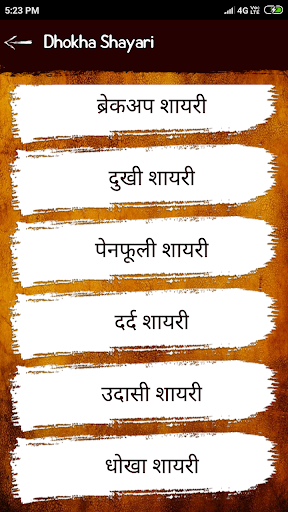 5:23 PM 4G VoLTE
Dhokha Shayari
ब्रेकअप शायरी
दुखी शायरी
पेनफूली शायरी
दर्द शायरी
उदासी शायरी
धोखा शायरी